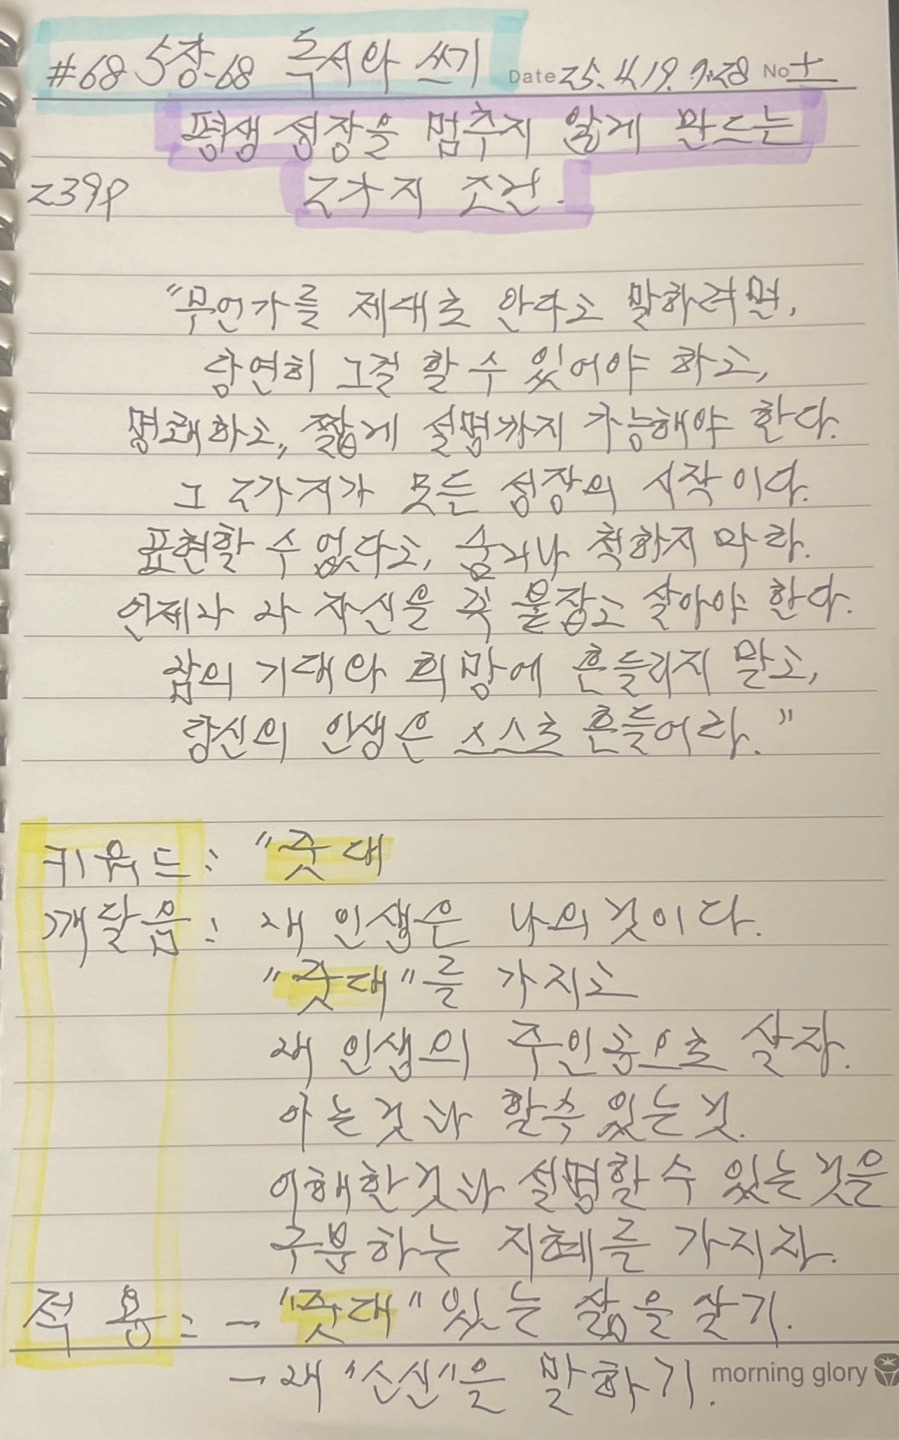 #68 5장-68 독서와 쓰기 Date 25. 4. 19. 9:28 No 토
평생 성장을 멈추지 않게 만드는
239p 2가지 조건.
"무언가를 제대로 안다고 말하려면,
당연히 그걸 할 수 있어야 하고,
명쾌하고, 짧게 설명까지 가능해야 한다.
그 2가지가 모든 성장의 시작이다.
표현할 수 없다고, 숨거나 척하지 마라.
언제나 나 자신을 꼭 붙잡고 살아야 한다.
삶의 기대와 희망에 흔들리지 말고,
당신의 인생은 스스로 흔들어라."
키워드 : "줏대
깨달음 : 내 인생은 나의것이다.
"줏대"를 가지고
내 인생의 주인공으로 살자.
아는것과 할수 있는것.
이해한것과 설명할 수 있는것을
구분하는 지혜를 가지자.
적용 : → "줏대" 있는 삶을 살기.
→ 내 "소신"을 말하기. morning glory